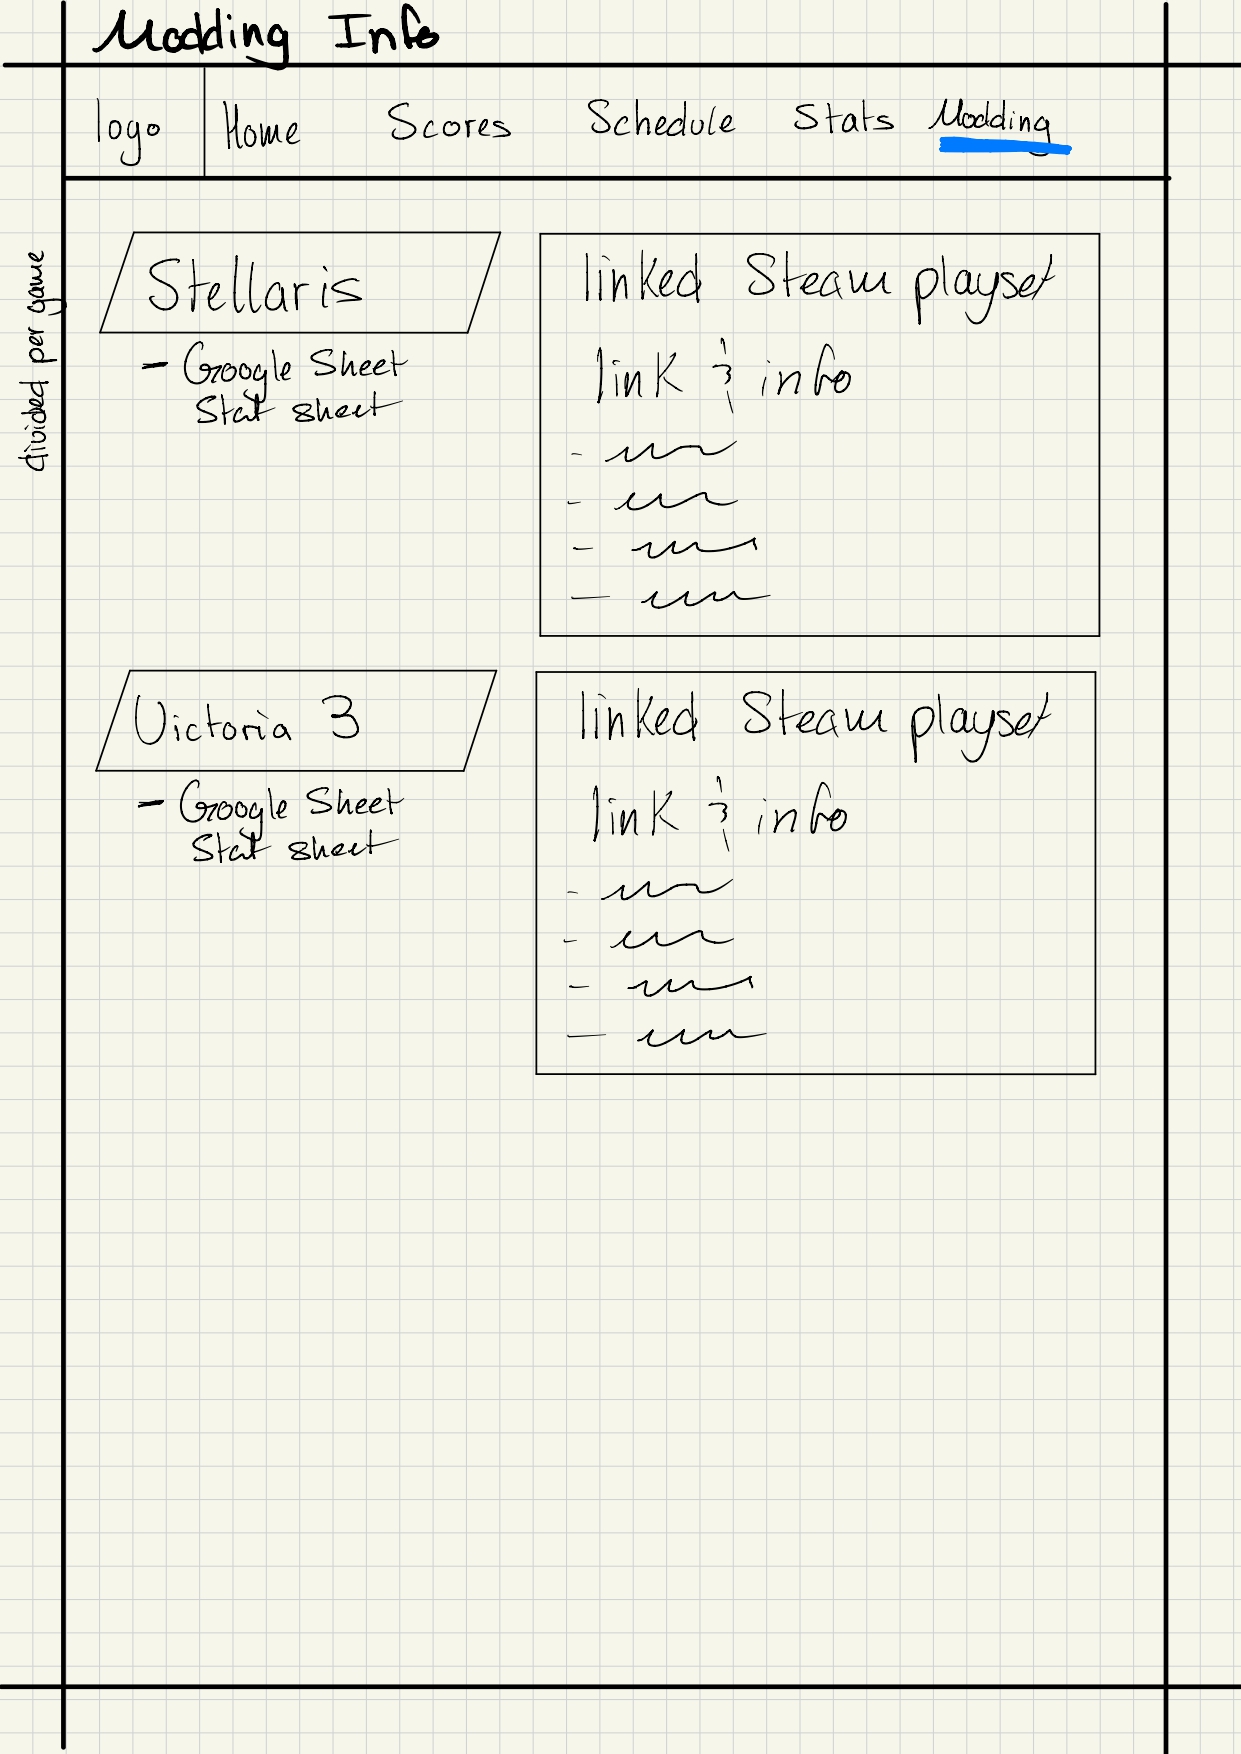 Modding Info
logo Home Scores Schedule Stats Modding
divided per game
Stellaris
- Google Sheet
Stat sheet
linked Steam playset
link & info
Victoria 3
- Google Sheet
Stat sheet
linked Steam playset
link & info